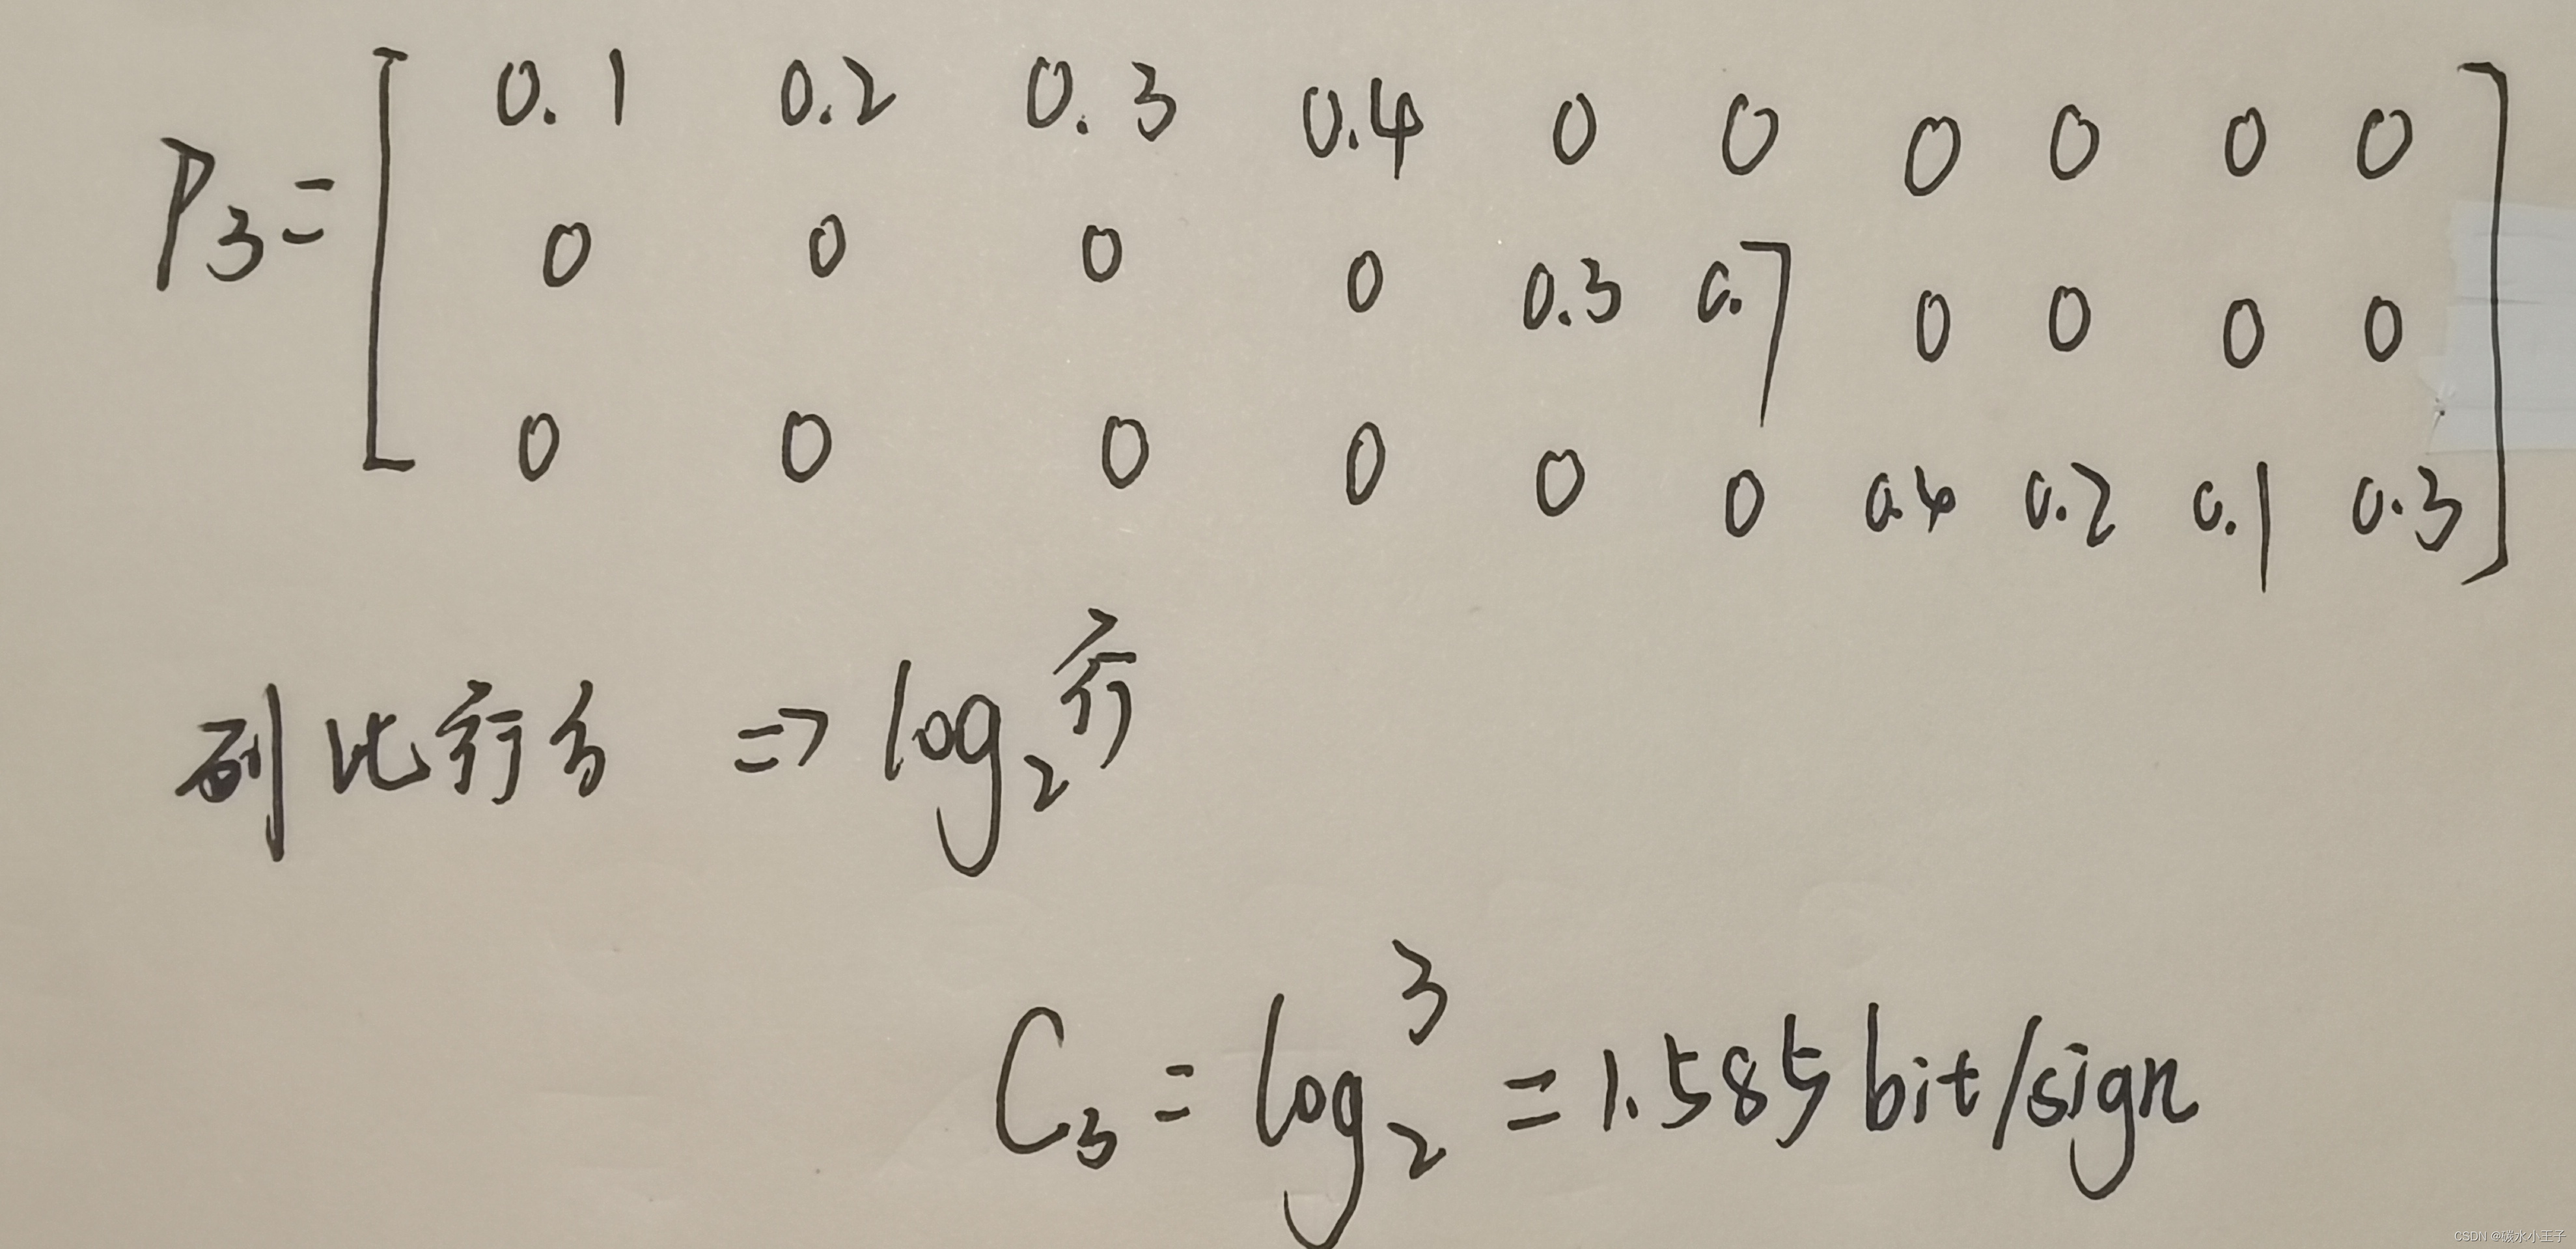 P₃= [ 0.1 0.2 0.3 0.4 0 0 0 0 0 0 ]
0 0 0 0 0.3 0.7 0 0 0 0
0 0 0 0 0 0 0.4 0.2 0.1 0.3
列比行多 => log₂行
C₃ = log₂3 = 1.585 bit/sign
CSDN @碳水小王子